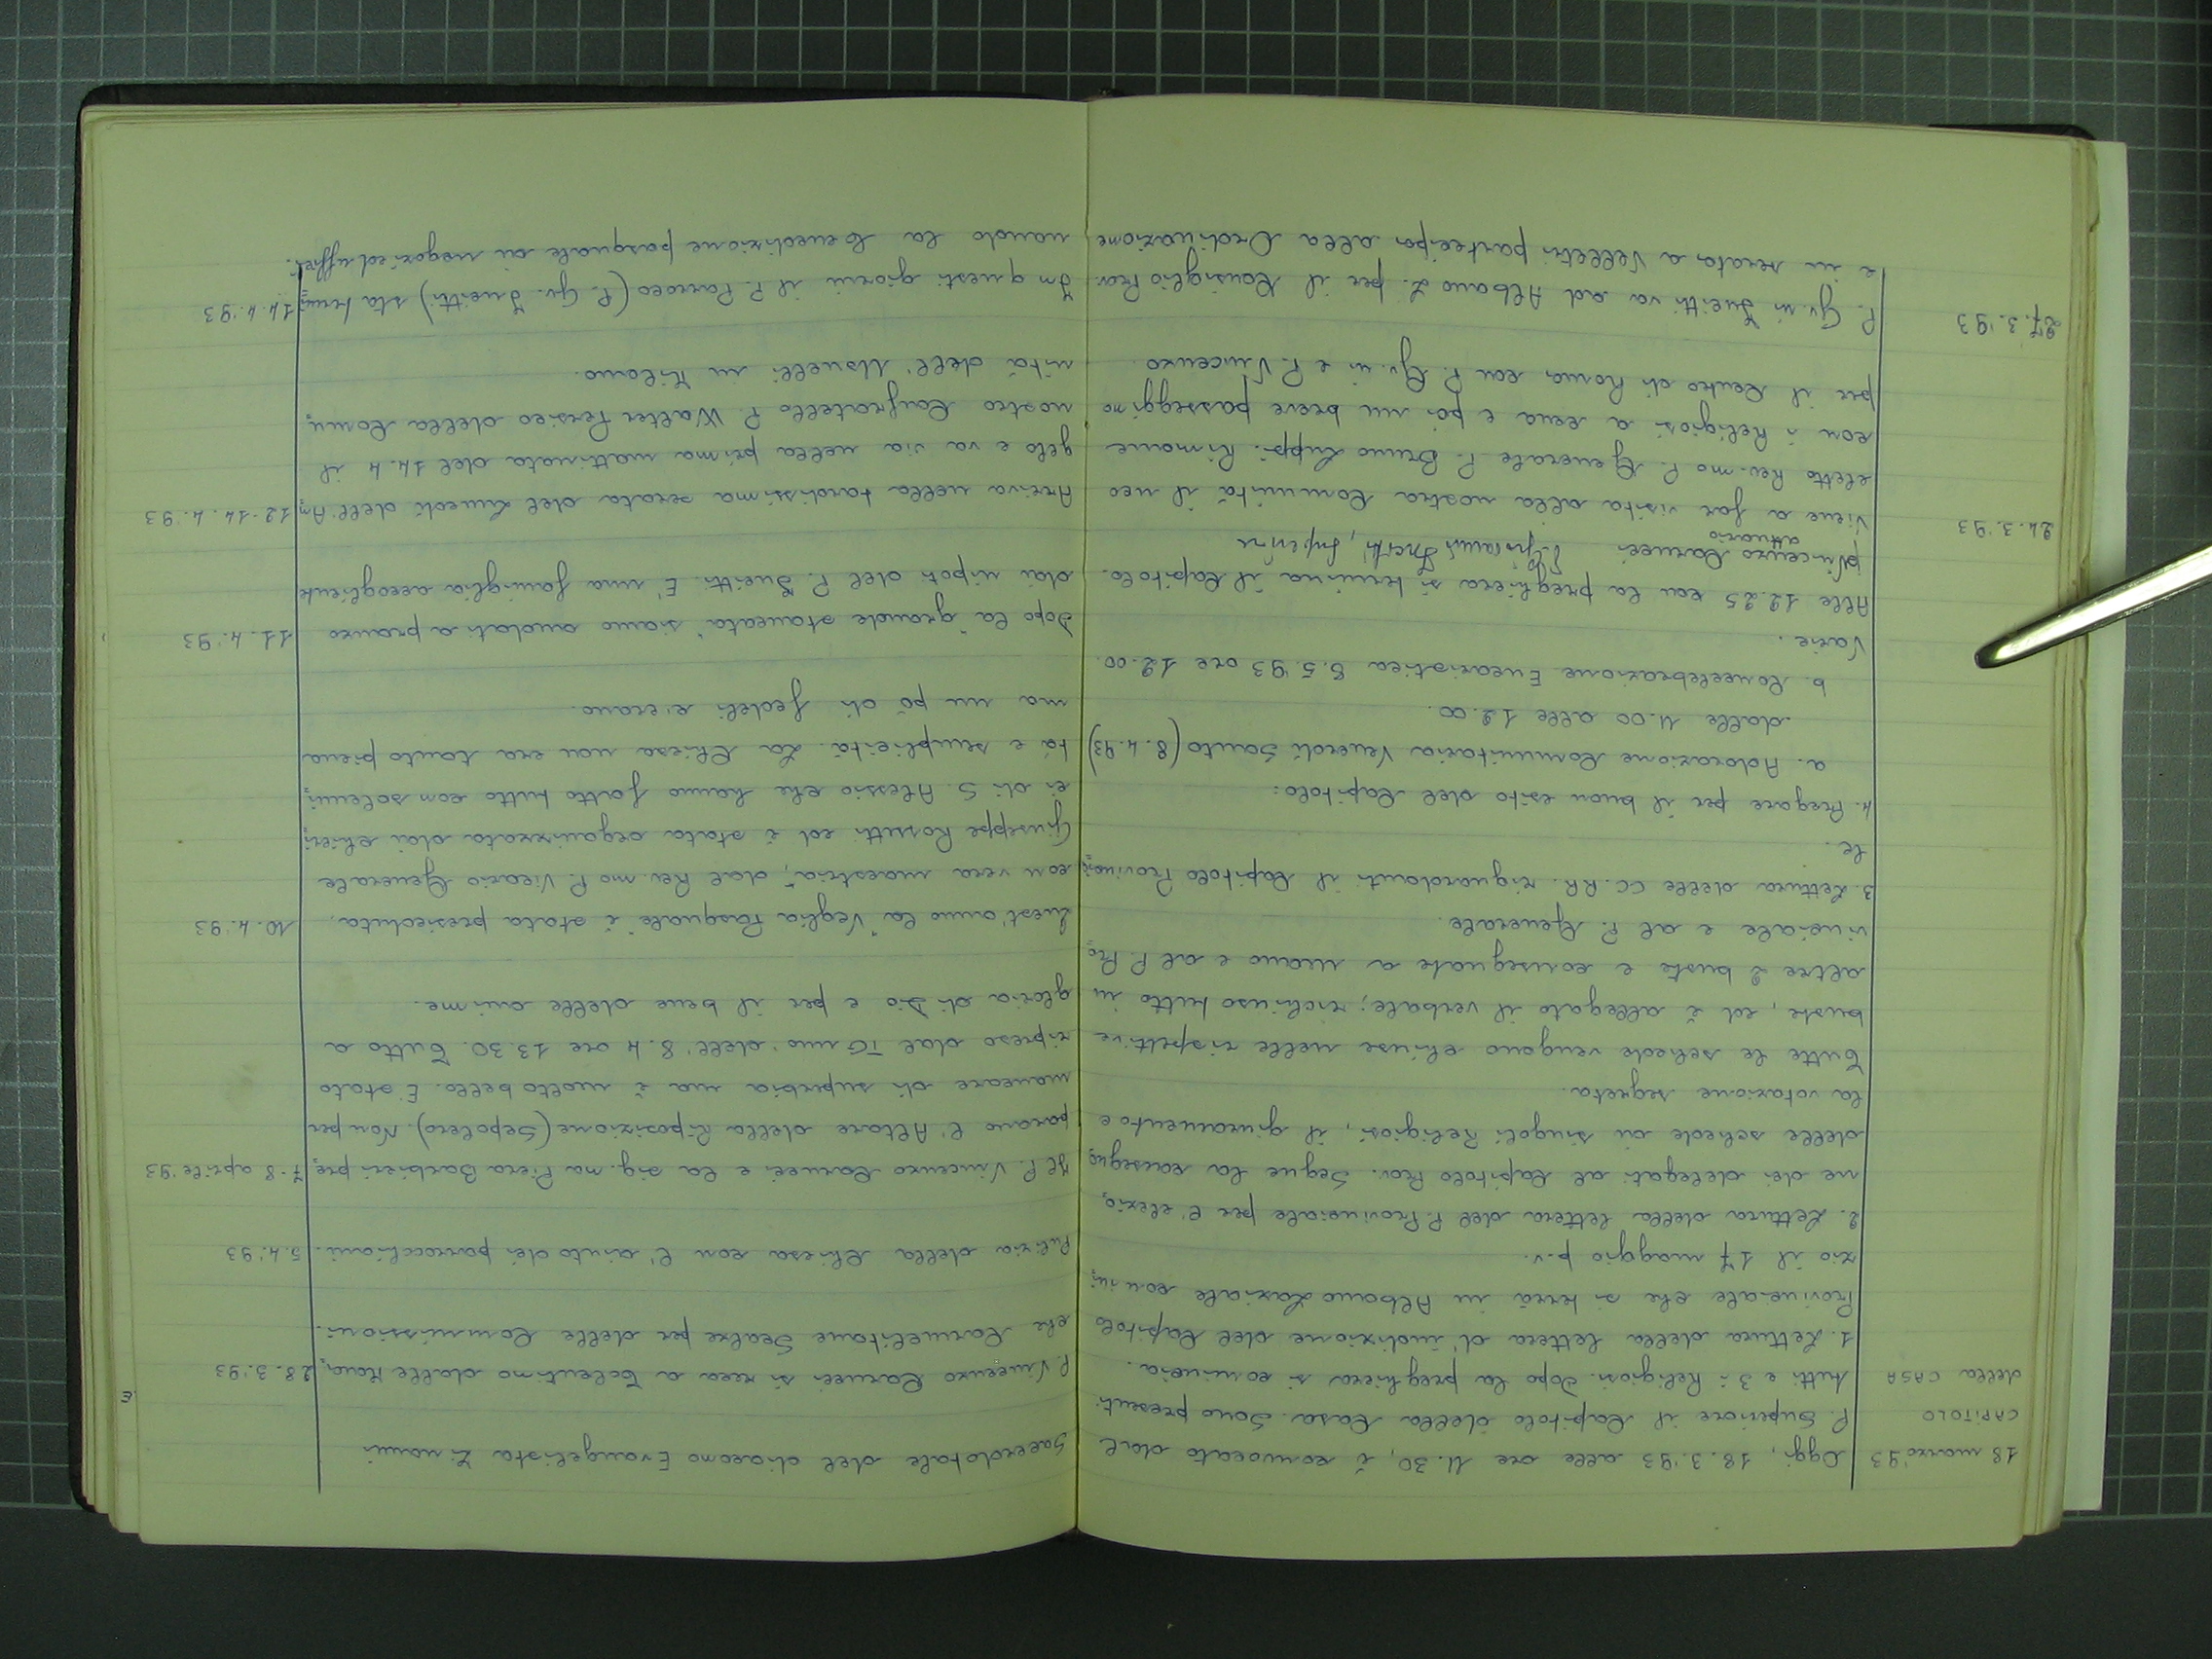 18 marzo '93 Oggi, 18.3.'93 alle ore 11.30, è convocato dal
CAPITOLO P. Superiore il Capitolo della Casa. Sono presenti
della CASA tutti e 3 i Religiosi. Dopo la preghiera si comincia.
1. Lettura della lettera d'indizione del Capitolo
Provinciale che si terrà in Albano Laziale con ini=
zio il 17 maggio p.v.
2. Lettura della lettera del P. Provinciale per l'elezio=
ne dei delegati al Capitolo Prov. Segue la consegna
delle schede ai singoli Religiosi, il giuramento e
la votazione segreta.
Tutte le schede vengano chiuse nelle rispettive
buste, ed è allegato il verbale; richiuso tutto in
altre 2 buste e consegnate a mano e al P. Pro=
vinciale e al P. Generale.
3. Lettura delle CC.RR. riguardanti il Capitolo Provincia=
le.
4. Pregare per il buon esito del Capitolo:
a. Adorazione Comunitaria Venerdì Santo (8.4.93)
dalle 11.00 alle 12.00.
b. Concelebrazione Eucaristica 8.5.'93 ore 12.00.
Varie.
Alle 12.25 con la preghiera si termina il Capitolo.
P. Vincenzo Carucci
attuario
24.3.'93 Viene a far visita alla nostra Comunità il neo
eletto Rev.mo P. Generale P. Bruno Luppi. Rimane
con i Religiosi a cena e poi un breve passeggino
per il Centro di Roma con P. Gv.ni e P. Vincenzo.
27.3.'93 P. Gv.ni Zueitti va ad Albano L. per il Consiglio Prov.
e in serata a Velletri partecipa alla Ordinazione
Sacerdotale del diacono Evangelista
P. Vincenzo Carucci si reca a Tolentino dalle Mona= 28.3.'93
che Carmelitane Scalze per delle Commissioni.
Pulizia della Chiesa con l'aiuto dei parrocchiani. 5.4.'93
Il P. Vincenzo Carucci e la sig.ma Piera Barbieri pre= 7-8 aprile '93
parano l'Altare della Riposizione (Sepolcro). Non per
mancare di superbia ma è molto bello. E' stato
ripreso dal TG uno dell'8.4 ore 13.30. Tutto a
gloria di Dio e per il bene delle anime.
Quest'anno la "Veglia Pasquale" è stata presieduta, 10.4.'93
con vera maestria, dal Rev.mo P. Vicario Generale
Giuseppe Rossetti ed è stata organizzata dai chieri=
ci di S. Alessio che hanno fatto tutto con solenni=
tà e semplicità. La Chiesa non era tanto piena
ma un pò di fedeli c'erano.
Dopo la "grande stancata" siamo andati a pranzo 11.4.'93
dai nipoti del P. Zueitti. E' una famiglia accogliente
Arriva nella tardissima serata del Lunedì dell'An= 12-14.4.'93
gelo e va via nella prima mattinata del 14.4 il
nostro Confratello P. Walter Persico della Comu=
nità dell'Usuelli in Milano.
In questi giorni il P. Parroco (P. Gv. Zueitti) sta termi= 14.4.'93
nando la benedizione pasquale ai negozi ed uffici.